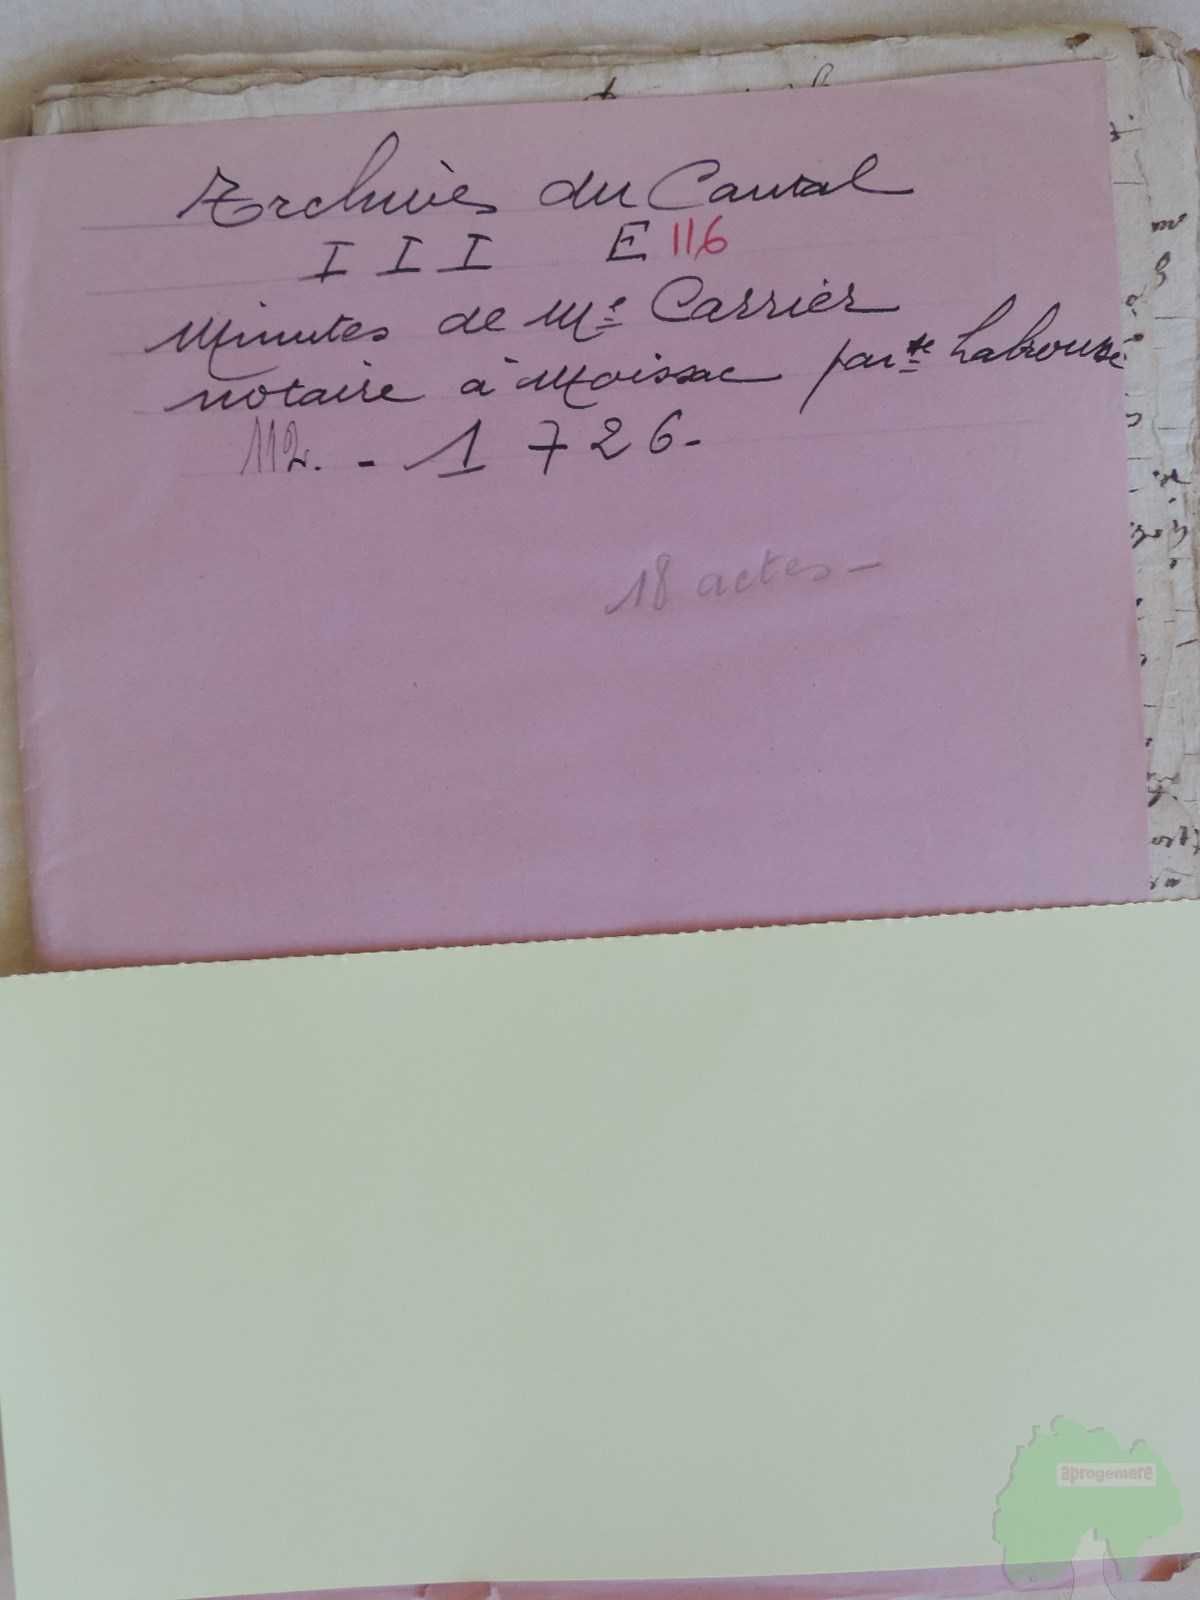 Archives du Cantal
III E 116
Minutes de Me Carrier
notaire à Moissac par se Labrousse
112. - 1726-
18 actes -
aprogemere